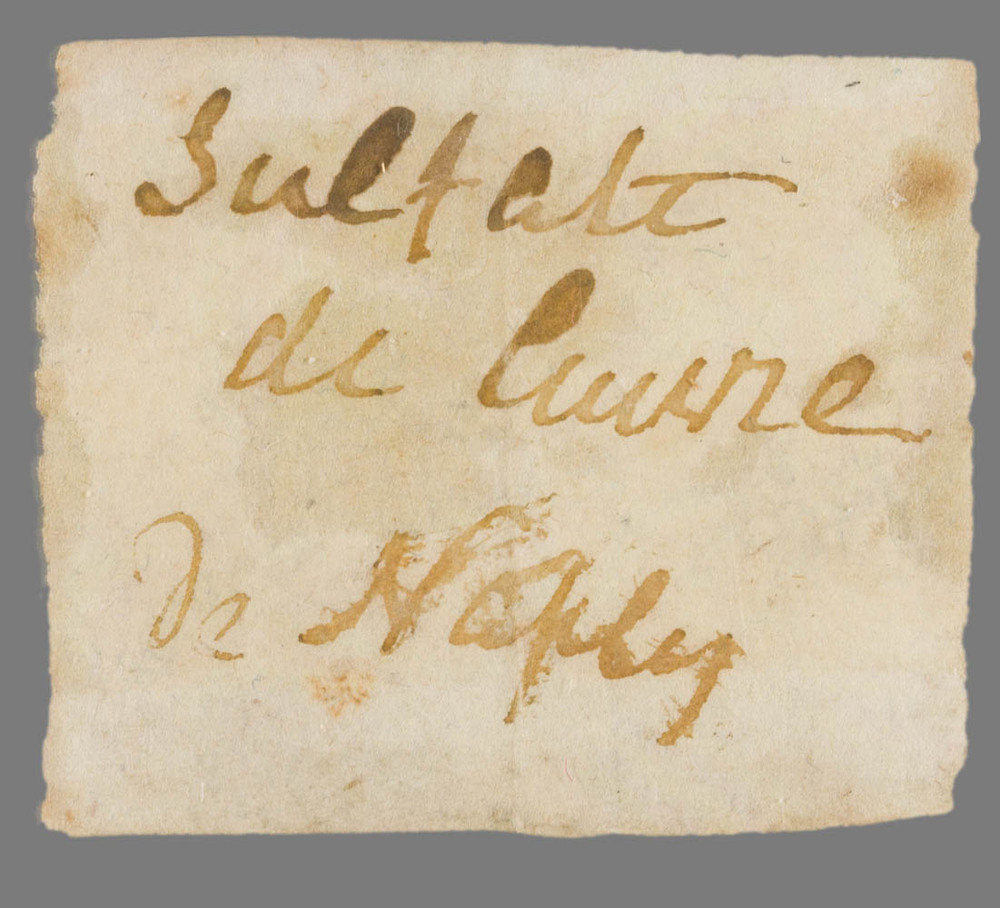 Sulfate
de Cuivre
De Naples